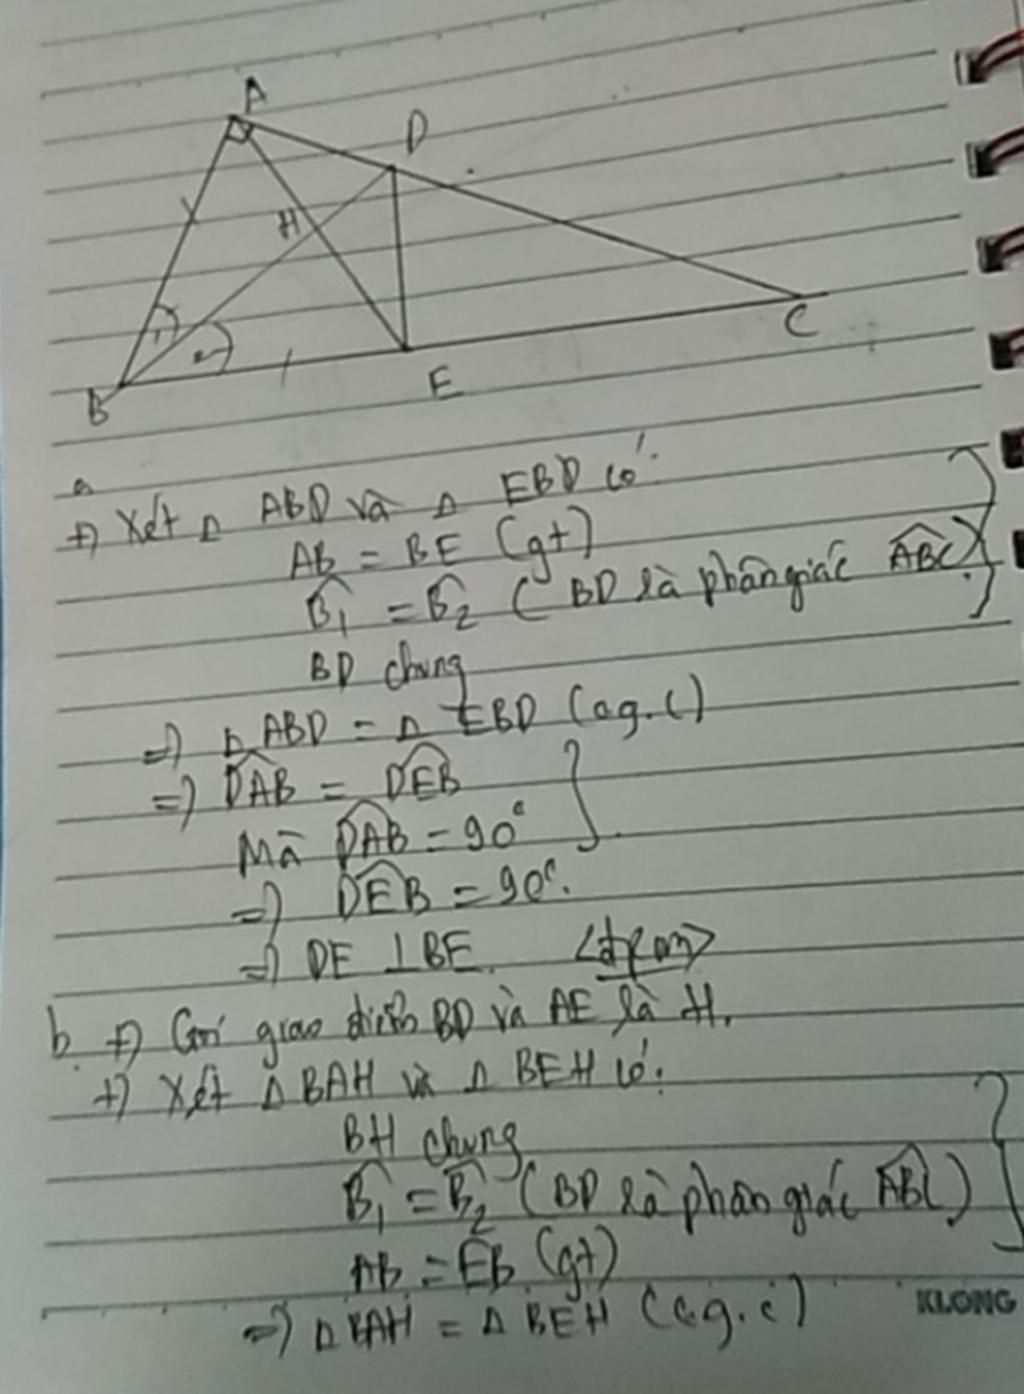 A
D
H
1
2
B
E
C
a
+) Xét Δ ABD và Δ EBD có:
AB = BE (gt)
B̂₁ = B̂₂ (BD là phân giác ABC)
BD chung
=) Δ ABD = Δ EBD (c.g.c)
=) DAB = DEB
Mà DAB = 90°
=) DEB = 90°.
=) DE ⊥ BE. <đpcm>
b. +) Gọi giao điểm BD và AE là H.
+) Xét Δ BAH và Δ BEH có:
BH chung
B̂₁ = B̂₂ (BD là phân giác ABC)
AB = EB (gt)
=) Δ BAH = Δ BEH (c.g.c)
KLONG